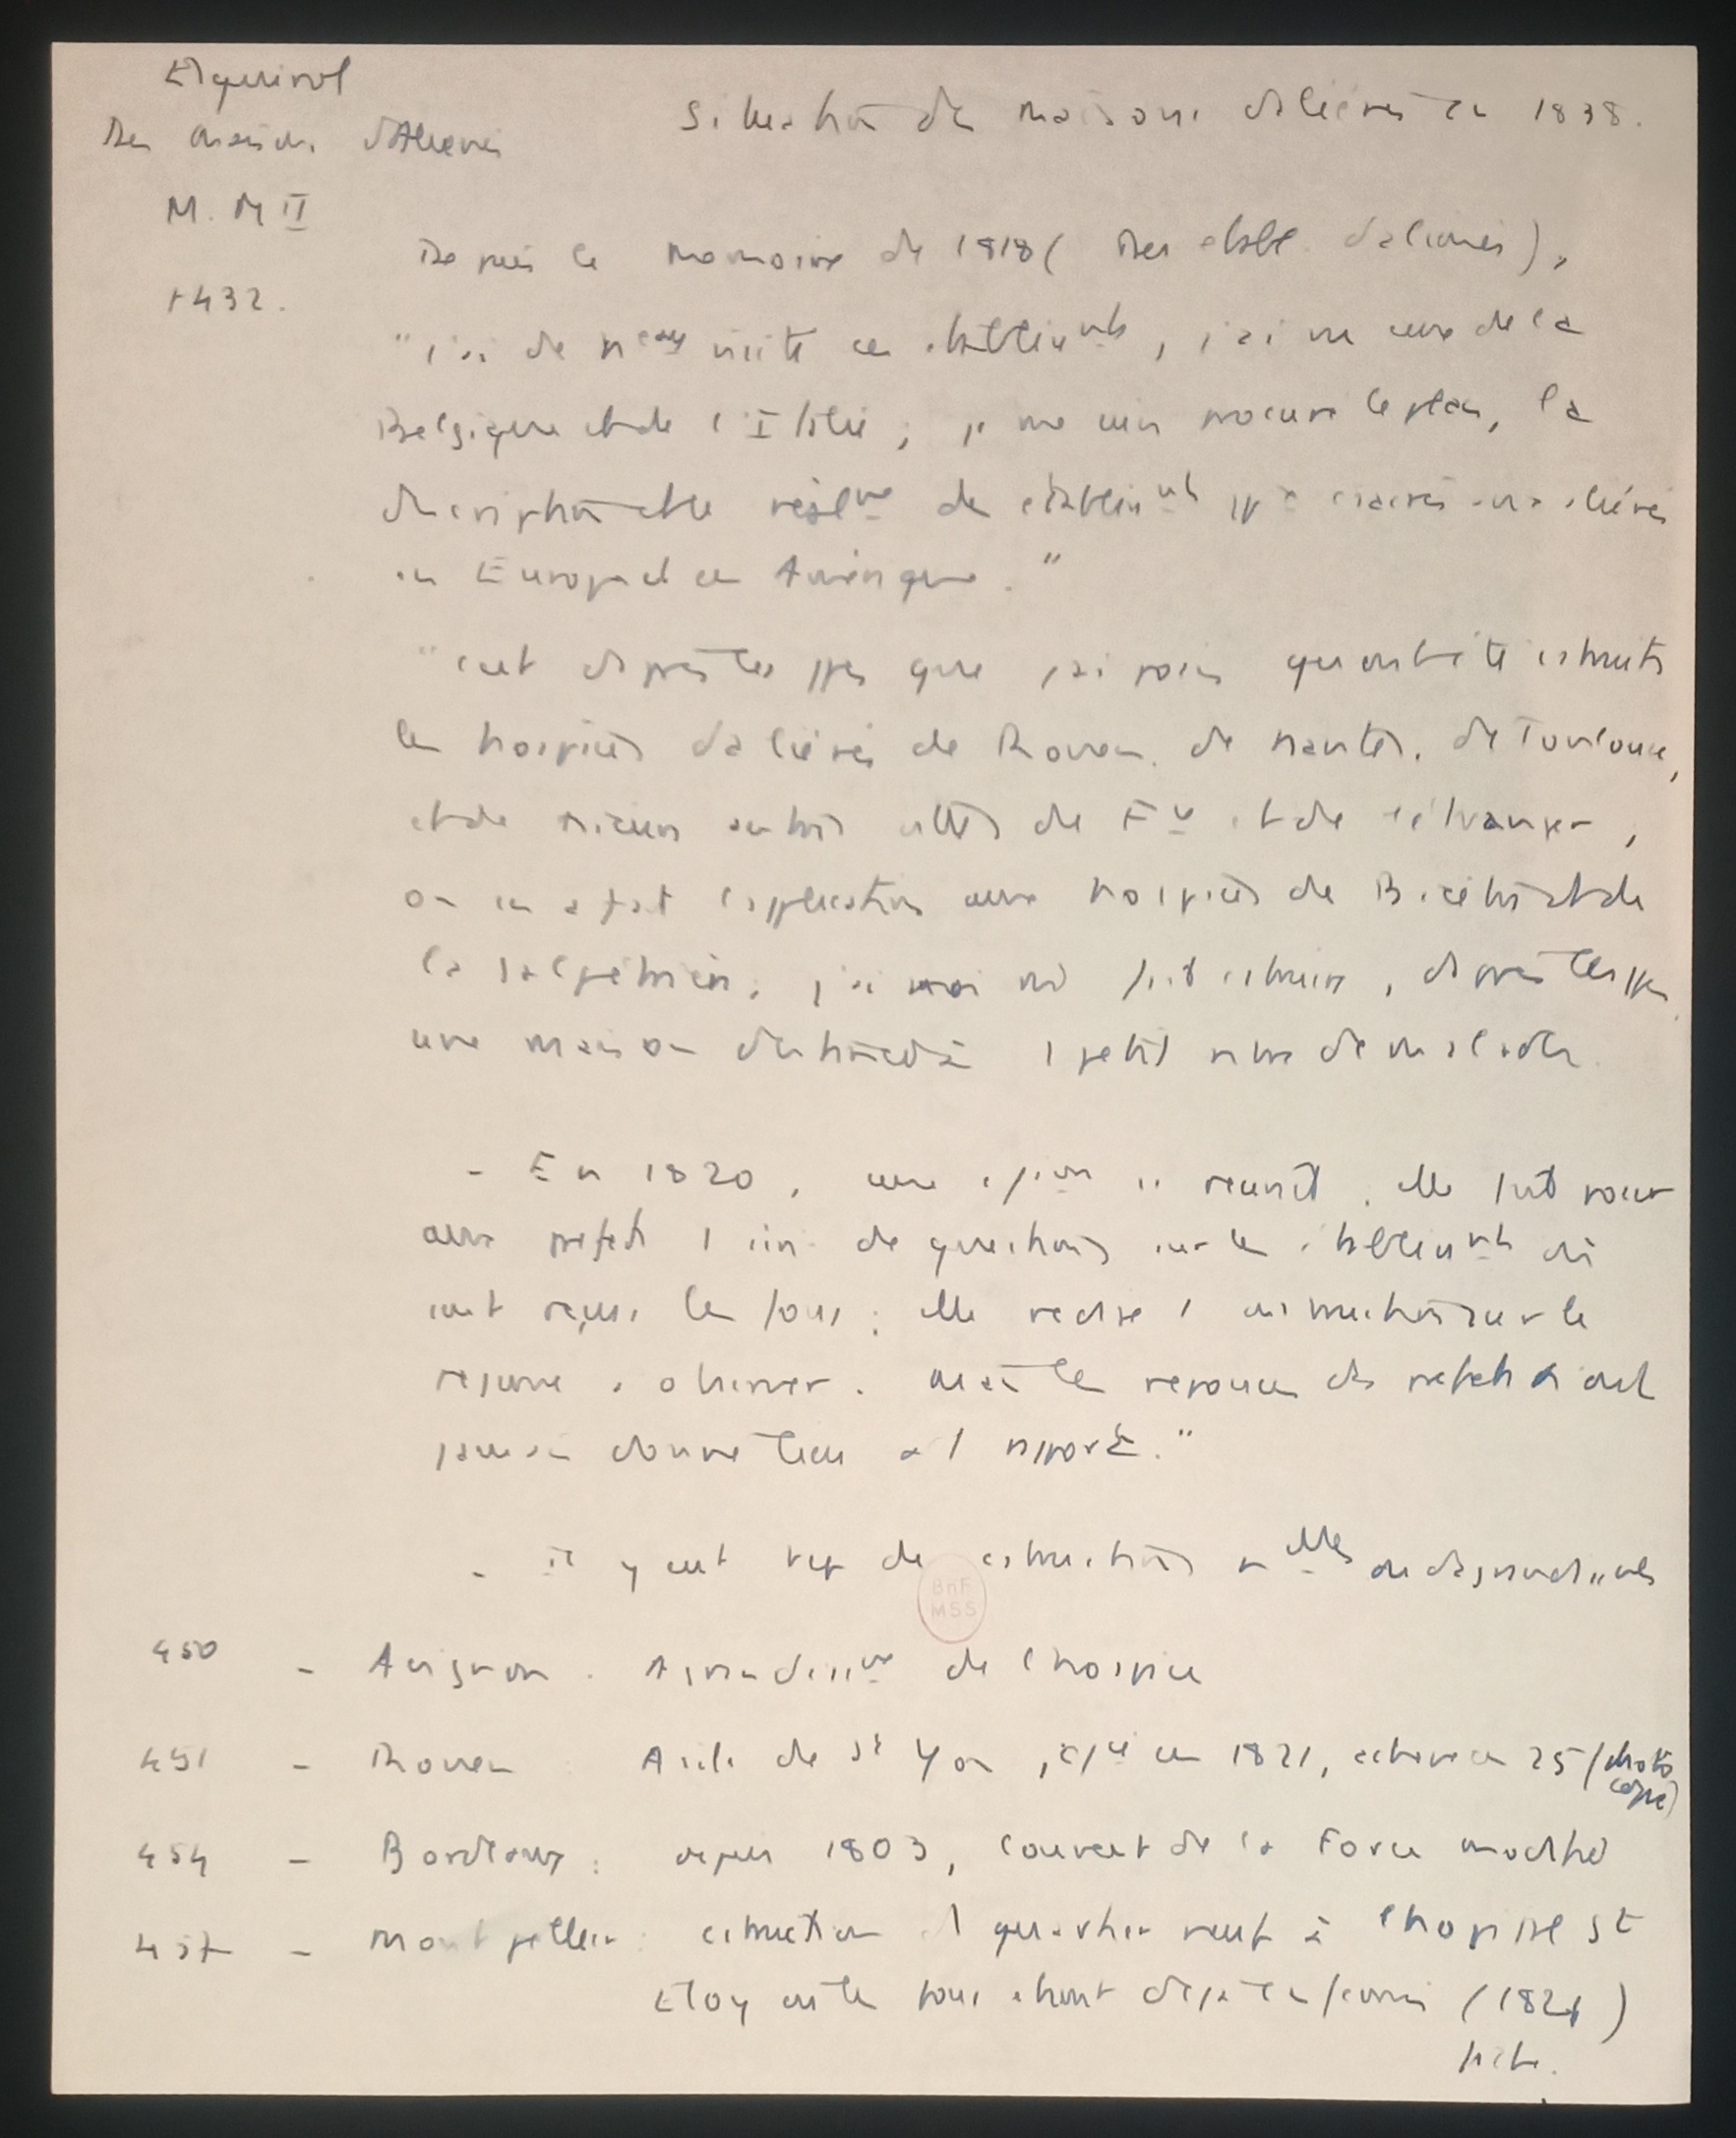 Esquirol
Des maisons d'Aliénés
M. M II
p 432.
Situation des maisons d'aliénés en 1838.
Depuis le mémoire de 1818 (Des établt. d'aliénés),
"j'ai de nveau visité ces établissmts, j'ai vu ceux de la
Belgique et de l'Italie ; je me suis procuré le plan, la
description et le règlmt des établissmts consacrés aux aliénés
en Europe et en Amérique."
"c'est d'après les ppes que j'ai posés qu'ont été cstruits
les hospices d'aliénés de Rouen, de Nantes, de Toulouse,
et de plusieurs autres villes de Fce et de l'étranger,
on en a fait l'application aux hospices de Bicêtre et de
la Salpêtrière, j'ai fait cstruire, d'après les ppes
une maison destinée à 1 petit nbre de malades.
- En 1820, une se réunit, elle fit poser
aux préfets 1 série de questions sur les établissmts où
sont reçus les fous ; elle rédige 1 instruction sur le
régime à observer. mais les réponses des préfets n'ont
jamais donné lieu à 1 rapport."
- il y eut des cstructions nvelles ou des agrandissmts
450 - Avignon . Agrandissmt de l'hospice
451 - Rouen : Asile de St Yon, en 1821, achevé en 25 (photo
copié)
454 - Bordeaux : depuis 1803, couvent de la Force modifié
457 - Montpellier : cstruction d'1 quartier neuf à l'hôpital St
Eloy où les fous étaient déjà enfermés (1821)